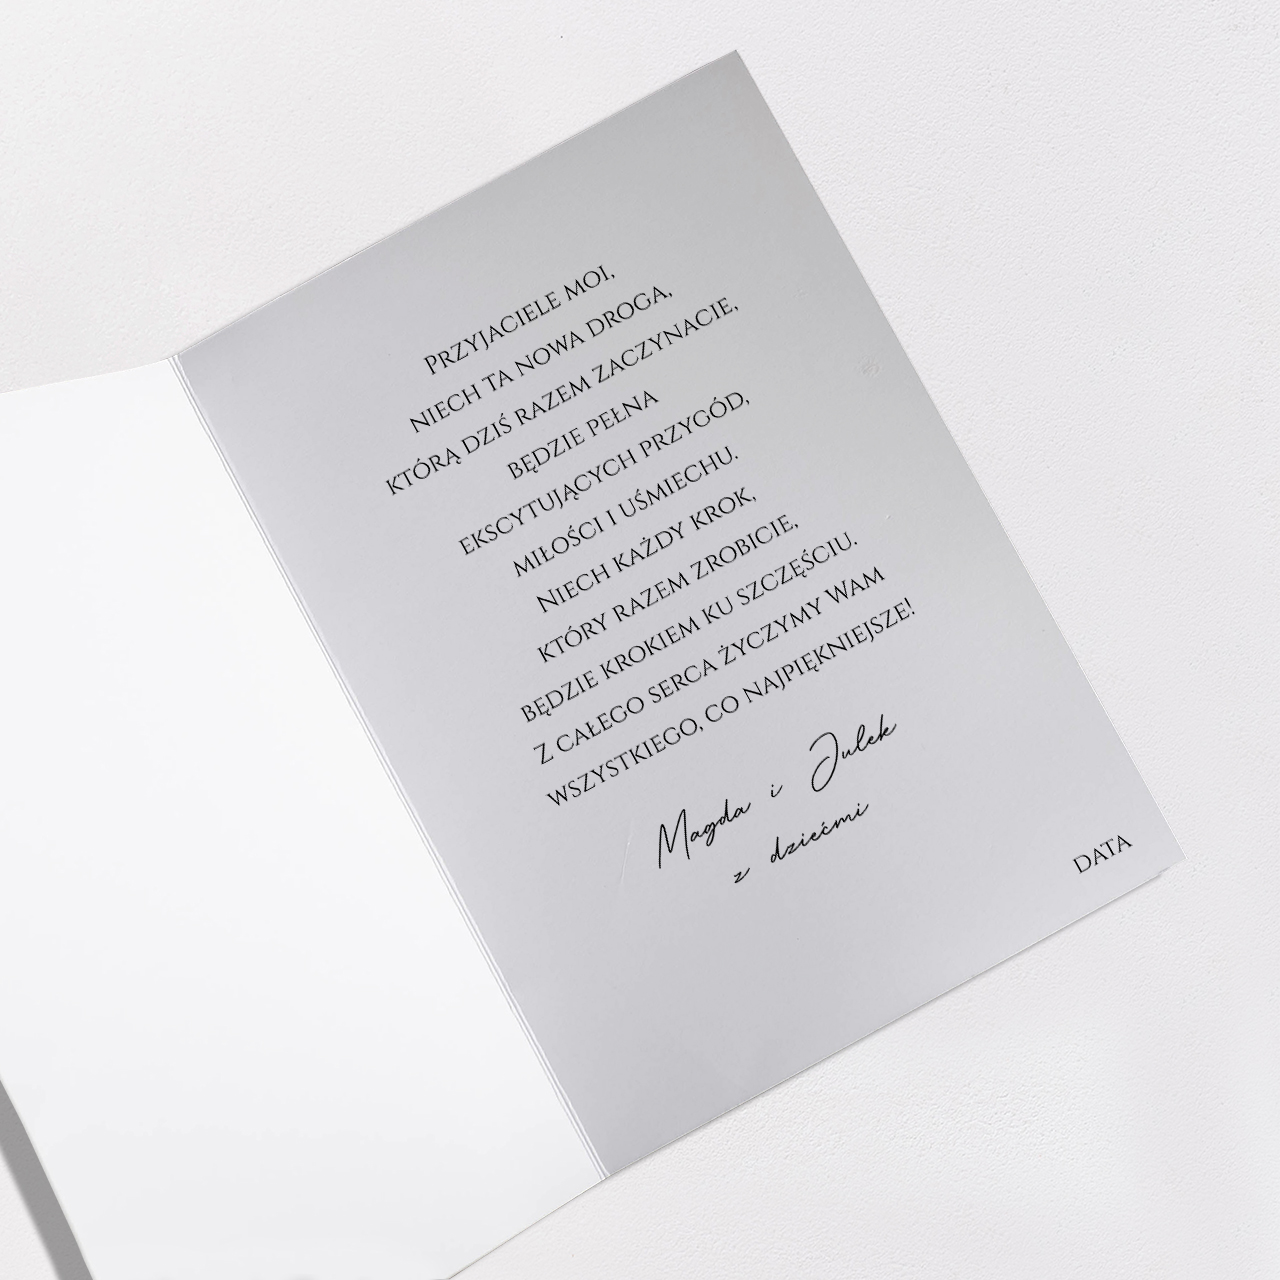 Przyjaciele moi,
niech ta nowa droga,
którą dziś razem zaczynacie,
będzie pełna
ekscytujących przygód,
miłości i uśmiechu.
Niech każdy krok,
który razem zrobicie,
będzie krokiem ku szczęściu.
Z całego serca życzymy Wam
wszystkiego, co najpiękniejsze!
Magda i Julek
z dziećmi
DATA